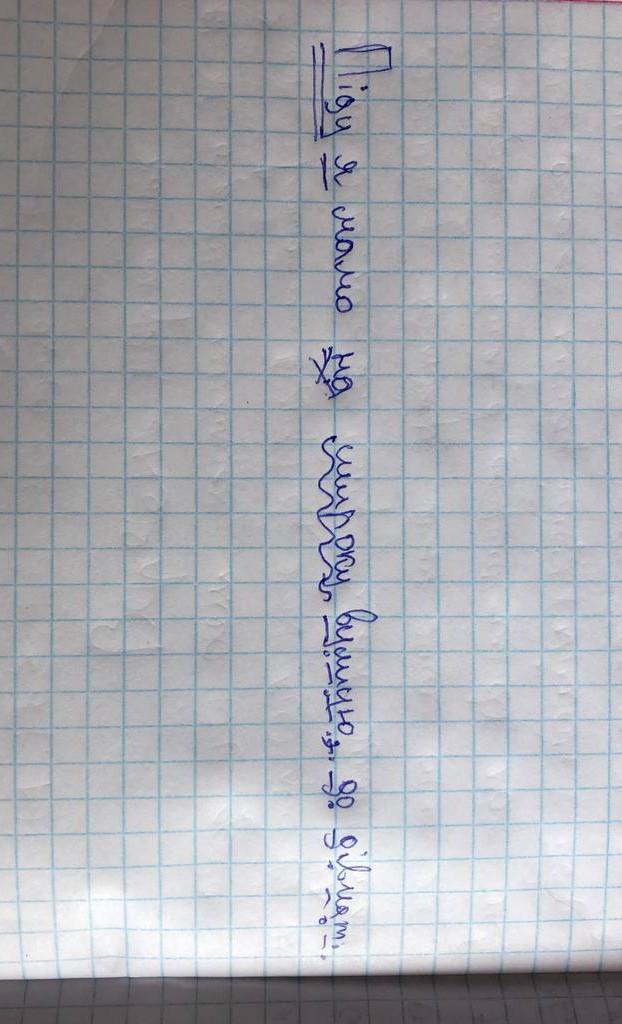 Піду я мамо на широку вулицю до дівчат.